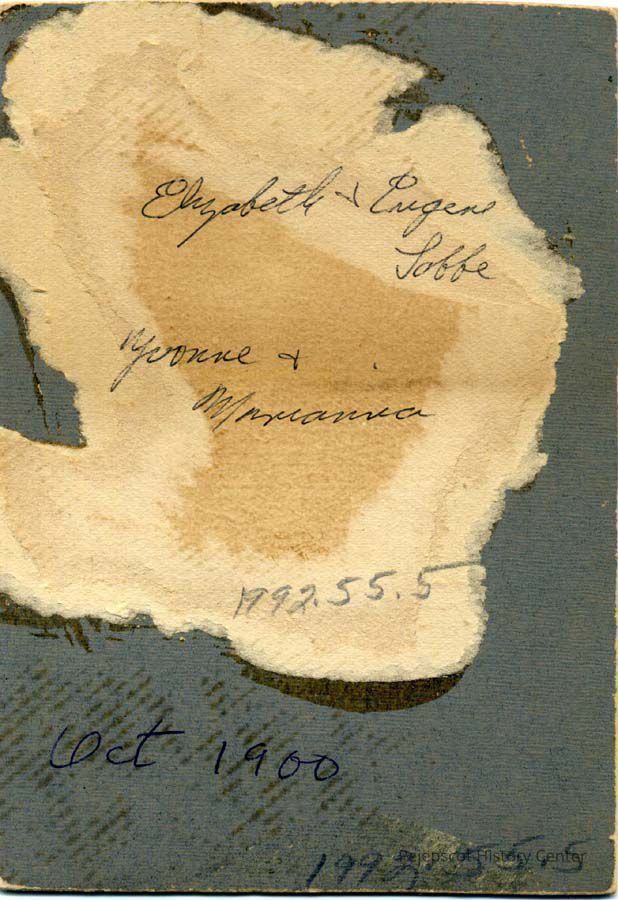 Elizabeth & Eugene
Sobbe
Yvonne &
Marianna
1992.55.5
Oct 1900
1992.55.5
Pejepscot History Center